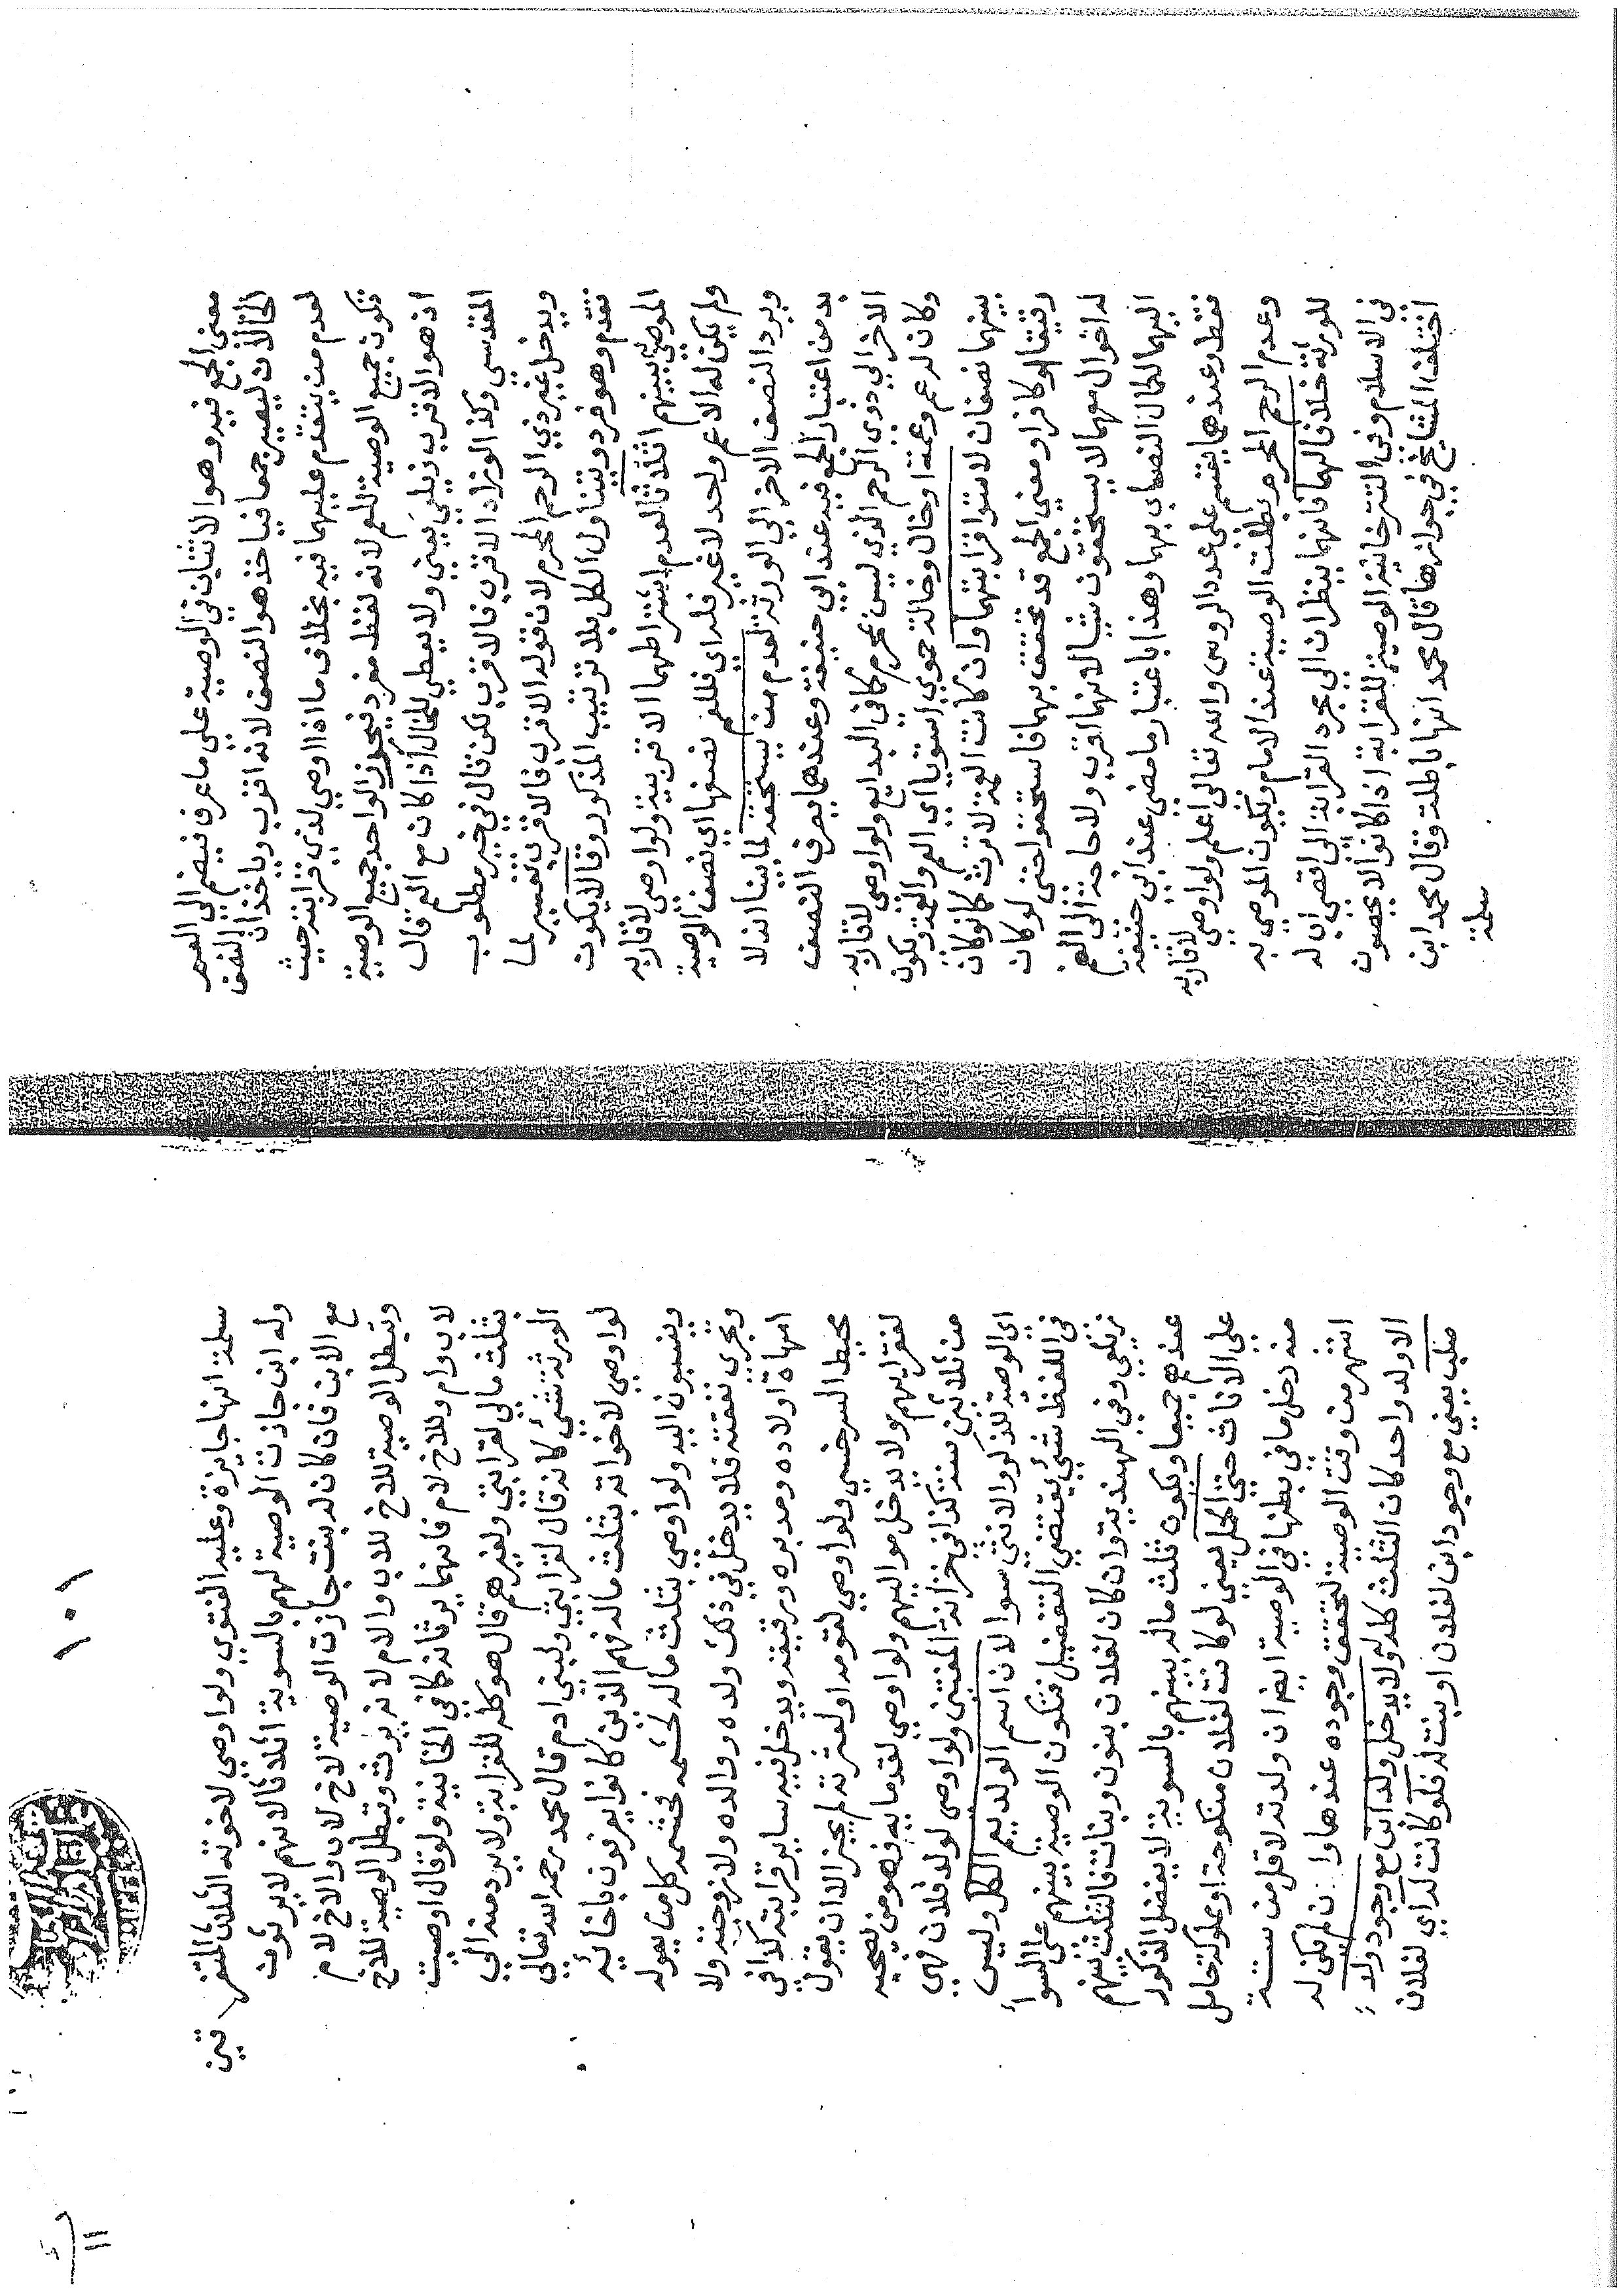 معنى الجمع فيه وهو الاثنان في الوصية على ما عرف فيضم الى العم
الخالان ليصير جمعا فياخذ هو النصف لانه اقرب وياخذان النصف
لعدم من يتقدم عليهما فيه بخلاف ما اذا اوصي لذي قرابته حيث
تكون جميع الوصية للعم لانه لفظ مفرد فيحرز الواحد جميع الوصية
اذ هو الاقرب زيلعي يعني ولا يعطي للخال اذا كان مع العم قال
المقدسي وكذا لو زاد الاقرب فالاقرب لكن قال في خير مطلوب
ويدخل غير ذي الرحم المحرم لان قوله الاقرب فالاقرب تفسير لما
تقدم وهو فرد ويتناول الكل بلا ترتيب المذكور وقالا يكون
الموصي به بينهم اثلاثا لعدم اشتراطهما الاقربية ولو اوصي لاقاربه
ولم يكن له الا عم واحد لا غير فله اي فللعم نصفها اي نصف الوصية
ويرد النصف الاخر الي الورثة لعدم من يستحقه لما بينا انه لا
بد من اعتبار الجمع فيه عند ابي حنيفة وعندهما يصرف النصف
الاخر الي ذوي الرحم الذي ليس بمحرم كما في البدايع ولو اوصي لاقاربه
وكان له عم وعمة او خال وخالة حموي استويا اي العم والعمة ويكون
بينهما نصفان لاستوا قرابتهما وان كانت العمة لا ترث كما لو كان
رقيقا او كافرا ومعنى الجمع قد تحقق بهما فاستحقوا حتى لو كان
له اخوال معهما لا يستحقون شيا لانهما اقرب ولا حاجة الى الضم
اليهما لكمال النصاب بهما وهذا باعتبار ما مضى عند ابي حنيفة
فقط وعندهما يقسم على عدد الروس والله تعالى اعلم ولو اوصي لاقاربه
وعدم الرحم المحرم بطلت الوصية عند الامام ويكون الموصي به
للورثة خلافا لهما فانهما ينظران الى مجرد القرابة الى اقصى اب له
في الاسلام وفي التترخانية الوصية للقرابة اذا كانوا لا يحصون
اختلف المشايخ في جوازها قال محمد انها باطلة وقال محمد ابن
سلمة
١٠١
سلمة انها جايزة وعليه الفتوي ولو اوصي لاخوته الثلاث المتفرقين
وله ابن جازت الوصية لهم بالسوية اثلاثا لانهم لا يرثون
مع الابن فان كان له بنت جازت الوصية لاخ لاب والاخ لام
وتبطل الوصية للاخ للاب والام لانه يرث وتبطل الوصية للاخ
لاب وام وللاخ لام فانهما يرثانه كما في الخانية ولو قال اوصيت
بثلث مالي لقرابتي ولغيرهم قال هو كله للقرابة ولا يرد منه الي
الورثة شئ كانه قال لقرابتي ولبني ادم قال محمد رحمه الله تعالي
لو اوصي لاخواته بثلث ماله فهم الذين كانوا يعرفون باخائه
وينسبون اليه ولو اوصي بثلث ماله لحشمه فحشمه كل من يعوله
وتجري نفقته فلا يدخل في ذلك ولده ووالده ولا زوجته ولا
امهاة اولاده ومدبره ورقيقه ويدخل فيه ساير قرابته كذا في
محيط السرخسي ولو اوصي لقومه او لعشرته لم يجز الا ان يقول
لفقرايهم ولا يدخل مواليهم ولو اوصي لقدمايه فهو من يصحبه
من ثلاثين سنة كذا في خزانة المفتي ولو اوصى لولد فلان فهي
اي الوصية للذكر والانثي سوا لان اسم الولد يعم الكل وليس
في اللفظ شئ يقتضي التفضيل فتكون الوصية بينهم على السوا
زيلعي وفي الهندية وان كان لفلان بنون وبنات فالثلث بينهم
عندهم جميعا ويكون ثلث ماله بينهم بالسوية لا يفضل الذكور
على الاناث حتى الحمل يعني لو كانت لفلان منكوحة او مملوكة حامل
منه دخل ما في بطنها في الوصية ايضا ان ولدته لاقل من ستة
اشهر من وقت الوصية لتحقق وجوده عندها وان لم يكن له
الا ولد واحد كان الثلث كله له ولا يدخل ولد ابن مع وجود ولد
صلب يعني مع وجود ابن لفلان او بنت له فلو كانت له اي لفلان